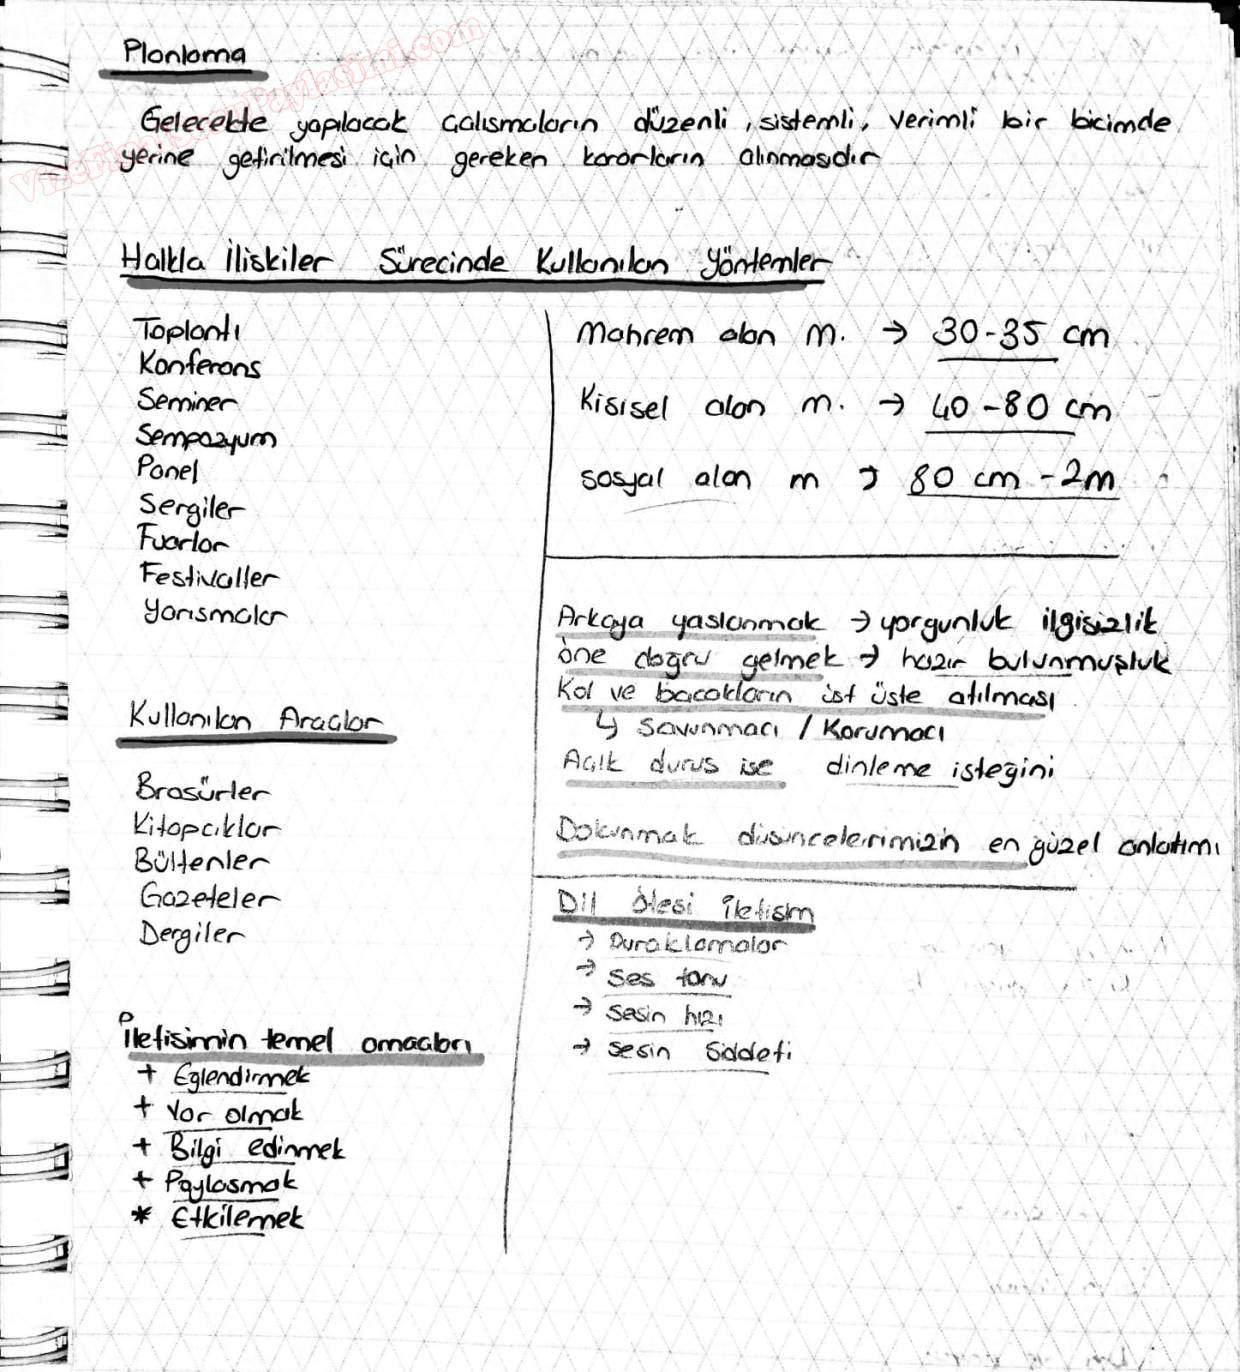 Planlama
Gelecekte yapılacak çalışmaların düzenli, sistemli, verimli bir biçimde
yerine getirilmesi için gereken kararların alınmasıdır
Halkla İlişkiler Sürecinde Kullanılan Yöntemler
Toplantı
Konferans
Seminer
Sempozyum
Panel
Sergiler
Fuarlar
Festivaller
Yarışmalar
Kullanılan Araçlar
Broşürler
Kitapçıklar
Bültenler
Gazeteler
Dergiler
İletişimin temel amaçları
+ Eğlendirmek
+ Var olmak
+ Bilgi edinmek
+ Paylaşmak
* Etkilemek
Mahrem alan m. → 30-35 cm
Kişisel alan m. → 40-80 cm
Sosyal alan m → 80 cm - 2m
Arkaya yaslanmak → yorgunluk ilgisizlik
öne doğru gelmek → hazır bulunmuşluk
Kol ve bacakların üst üste atılması
↳ Savunmacı / Korumacı
Açık duruş ise dinleme isteğini
Dokunmak düşüncelerimizin en güzel anlatımı
Dil ötesi iletişim
→ Duraklamalar
→ Ses tonu
→ Sesin hızı
→ Sesin Şiddeti